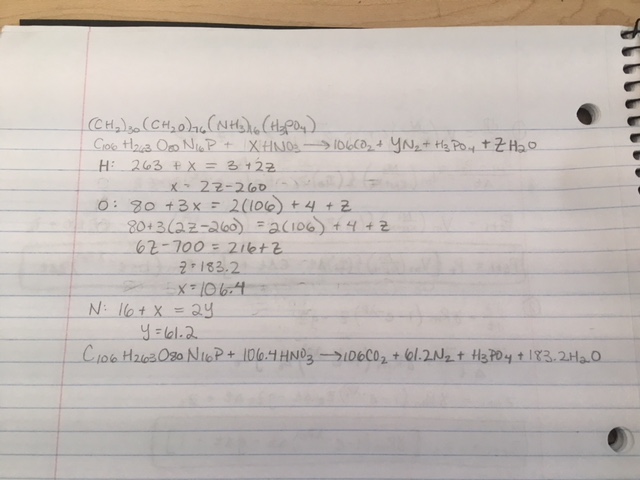 (CH2)30(CH2O)76(NH3)16(H3PO4)
C106H263O80N16P + XHNO3 → 106CO2 + YN2 + H3PO4 + ZH2O
H: 263 + x = 3 + 2z
x = 2z - 260
O: 80 + 3x = 2(106) + 4 + z
80 + 3(2z - 260) = 2(106) + 4 + z
6z - 700 = 216 + z
z = 183.2
x = 106.4
N: 16 + x = 2y
y = 61.2
C106H263O80N16P + 106.4HNO3 → 106CO2 + 61.2N2 + H3PO4 + 183.2H2O